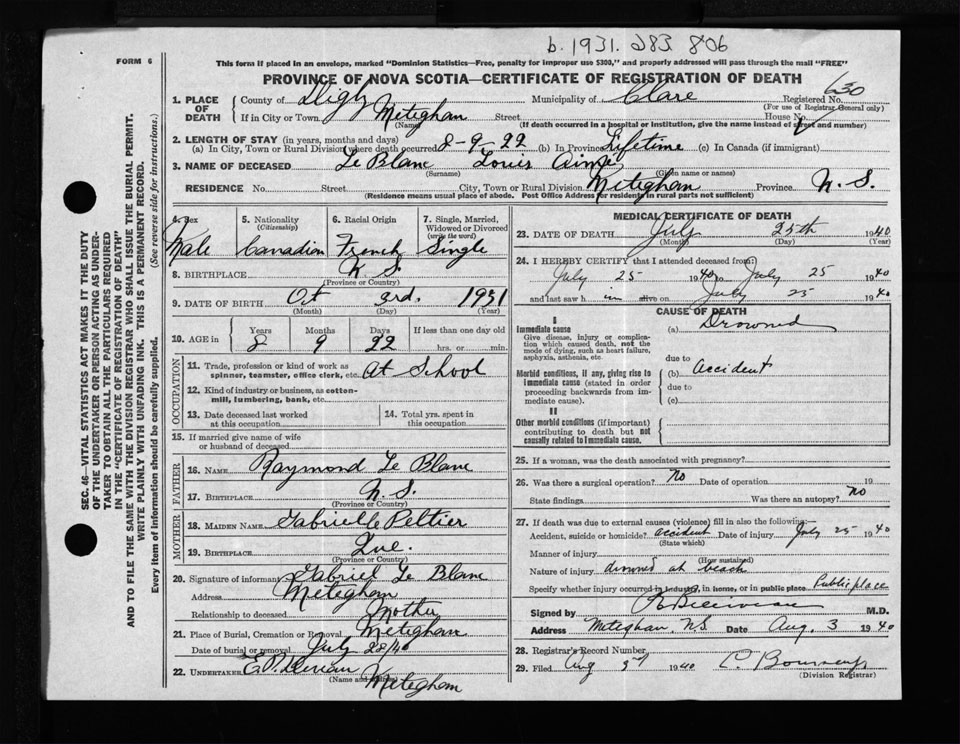 b. 1931. 283 806
FORM 6
This form if placed in an envelope, marked "Dominion Statistics—Free, penalty for improper use $300," and properly addressed will pass through the mail "FREE"
PROVINCE OF NOVA SCOTIA—CERTIFICATE OF REGISTRATION OF DEATH
1. PLACE OF DEATH
County of Digby Municipality of Clare Registered No. 630
(For use of Registrar General only)
If in City or Town Meteghan Street House No.
(Name) (If death occurred in a hospital or institution, give the name instead of street and number)
2. LENGTH OF STAY (in years, months and days)
(a) In City, Town or Rural Division where death occurred 8-9-22 (b) In Province Lifetime (c) In Canada (if immigrant)
3. NAME OF DECEASED Le Blanc Louis Aimé
(Surname) (Given name or names)
RESIDENCE No. Street City, Town or Rural Division Meteghan Province N. S.
(Residence means usual place of abode. Post Office Address for residents in rural parts not sufficient)
4. Sex
Male
5. Nationality
(Citizenship)
Canadian
6. Racial Origin
French
7. Single, Married, Widowed or Divorced
(write the word)
Single
8. BIRTHPLACE N. S.
(Province or Country)
9. DATE OF BIRTH Oct 3rd. 1931
(Month) (Day) (Year)
10. AGE in
Years Months Days If less than one day old
8 9 22 hrs. or min.
OCCUPATION
11. Trade, profession or kind of work as
spinner, teamster, office clerk, etc. At School
12. Kind of industry or business, as cotton-
mill, lumbering, bank, etc.
13. Date deceased last worked
at this occupation
14. Total yrs. spent in
this occupation
15. If married give name of wife
or husband of deceased
FATHER
16. NAME Raymond Le Blanc
17. BIRTHPLACE N. S.
(Province or Country)
MOTHER
18. MAIDEN NAME Gabrielle Peltier
19. BIRTHPLACE Que.
(Province or Country)
20. Signature of informant Gabriel Le Blanc
Address Meteghan
Relationship to deceased Mother
21. Place of Burial, Cremation or Removal Meteghan
Date of burial or removal July 28/40
22. UNDERTAKER
(Name and address)
Meteghan
MEDICAL CERTIFICATE OF DEATH
23. DATE OF DEATH July 25th 1940
(Month) (Day) (Year)
24. I HEREBY CERTIFY that I attended deceased from:
July 25 1940 to July 25 1940
and last saw h im alive on July 25 1940
CAUSE OF DEATH
I
Immediate cause
Give disease, injury or complica-
tion which caused death, not the
mode of dying, such as heart failure,
asphyxia, asthenia, etc.
(a) Drowned
due to
Morbid conditions, if any, giving rise to
immediate cause (stated in order
proceeding backwards from im-
mediate cause).
(b) accident
due to
(c)
II
Other morbid conditions (if important)
contributing to death but not
causally related to immediate cause.
25. If a woman, was the death associated with pregnancy?
26. Was there a surgical operation? No Date of operation 19
State findings Was there an autopsy? No
27. If death was due to external causes (violence) fill in also the following:—
Accident, suicide or homicide? accident Date of injury July 25 1940
(State which)
Manner of injury
(How sustained)
Nature of injury drowned at beach
Specify whether injury occurred in industry, in home, or in public place Public place
Signed by M.D.
Address Meteghan, N.S. Date Aug. 3 1940
28. Registrar's Record Number
29. Filed Aug 3rd 1940
(Division Registrar)
SEC. 46—VITAL STATISTICS ACT MAKES IT THE DUTY
OF THE UNDERTAKER OR PERSON ACTING AS UNDER-
TAKER TO OBTAIN ALL THE PARTICULARS REQUIRED
IN THE "CERTIFICATE OF REGISTRATION OF DEATH"
AND TO FILE THE SAME WITH THE DIVISION REGISTRAR WHO SHALL ISSUE THE BURIAL PERMIT.
WRITE PLAINLY WITH UNFADING INK. THIS IS A PERMANENT RECORD.
Every item of Information should be carefully supplied. (See reverse side for instructions.)